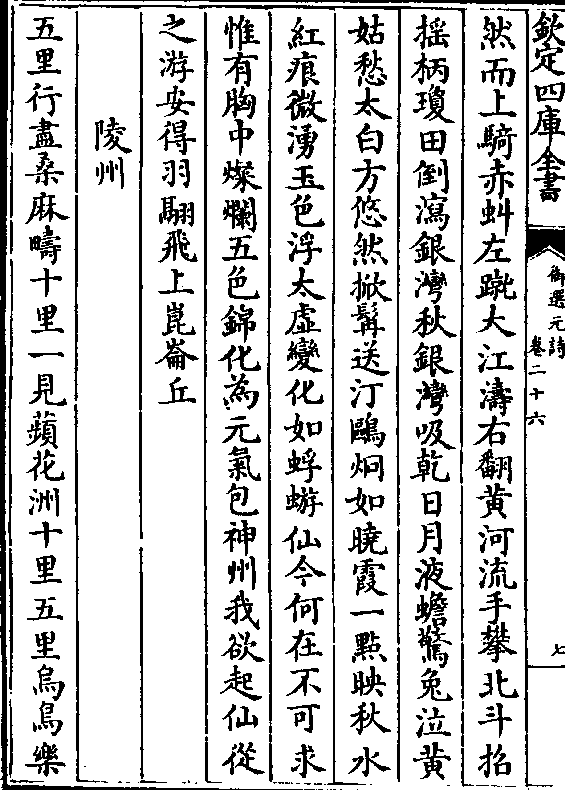 欽定四庫全書
御選元詩
卷二十六
七
然而上騎赤虯左蹴大江濤右翻黃河流手攀北斗招
搖柄瓊田倒瀉銀灣秋銀灣吸乾日月液蟾驚兔泣黃
姑愁太白方悠然掀髯送汀鷗炯如曉霞一點映秋水
紅痕微湧玉色浮太虛變化如蜉蝣仙今何在不可求
惟有胸中燦爛五色錦化為元氣包神州我欲起仙從
之游安得羽翮飛上崑崙丘
陵州
五里行盡桑麻疇十里一見蘋花洲十里五里烏烏樂